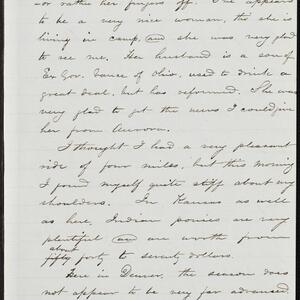 or rather her fingers off. She appears
to be a very nice woman, tho she is
living in camp, and she was very glad
to see me. Her husband is a son of
Ex Gov. Vance of Ohio, used to drink a
great deal, but has reformed. She was
very glad to get the news I could give
her from Aurora.
I thought I had a very pleasant
ride of four miles, but this morning
I found myself quite stiff about my
shoulders. In Kansas as well
as here, Indian ponies are very
plentiful and are worth from
about
fifty forty to seventy dollars.
Here in Denver, the season does
not appear to be very far advanced